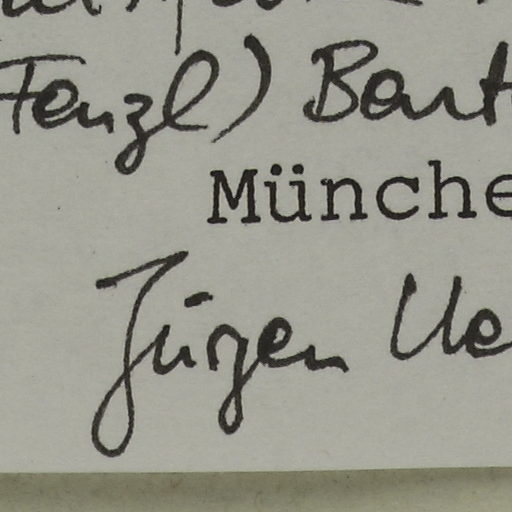 Fenzl) Bart
Münche
Jürgen Ue